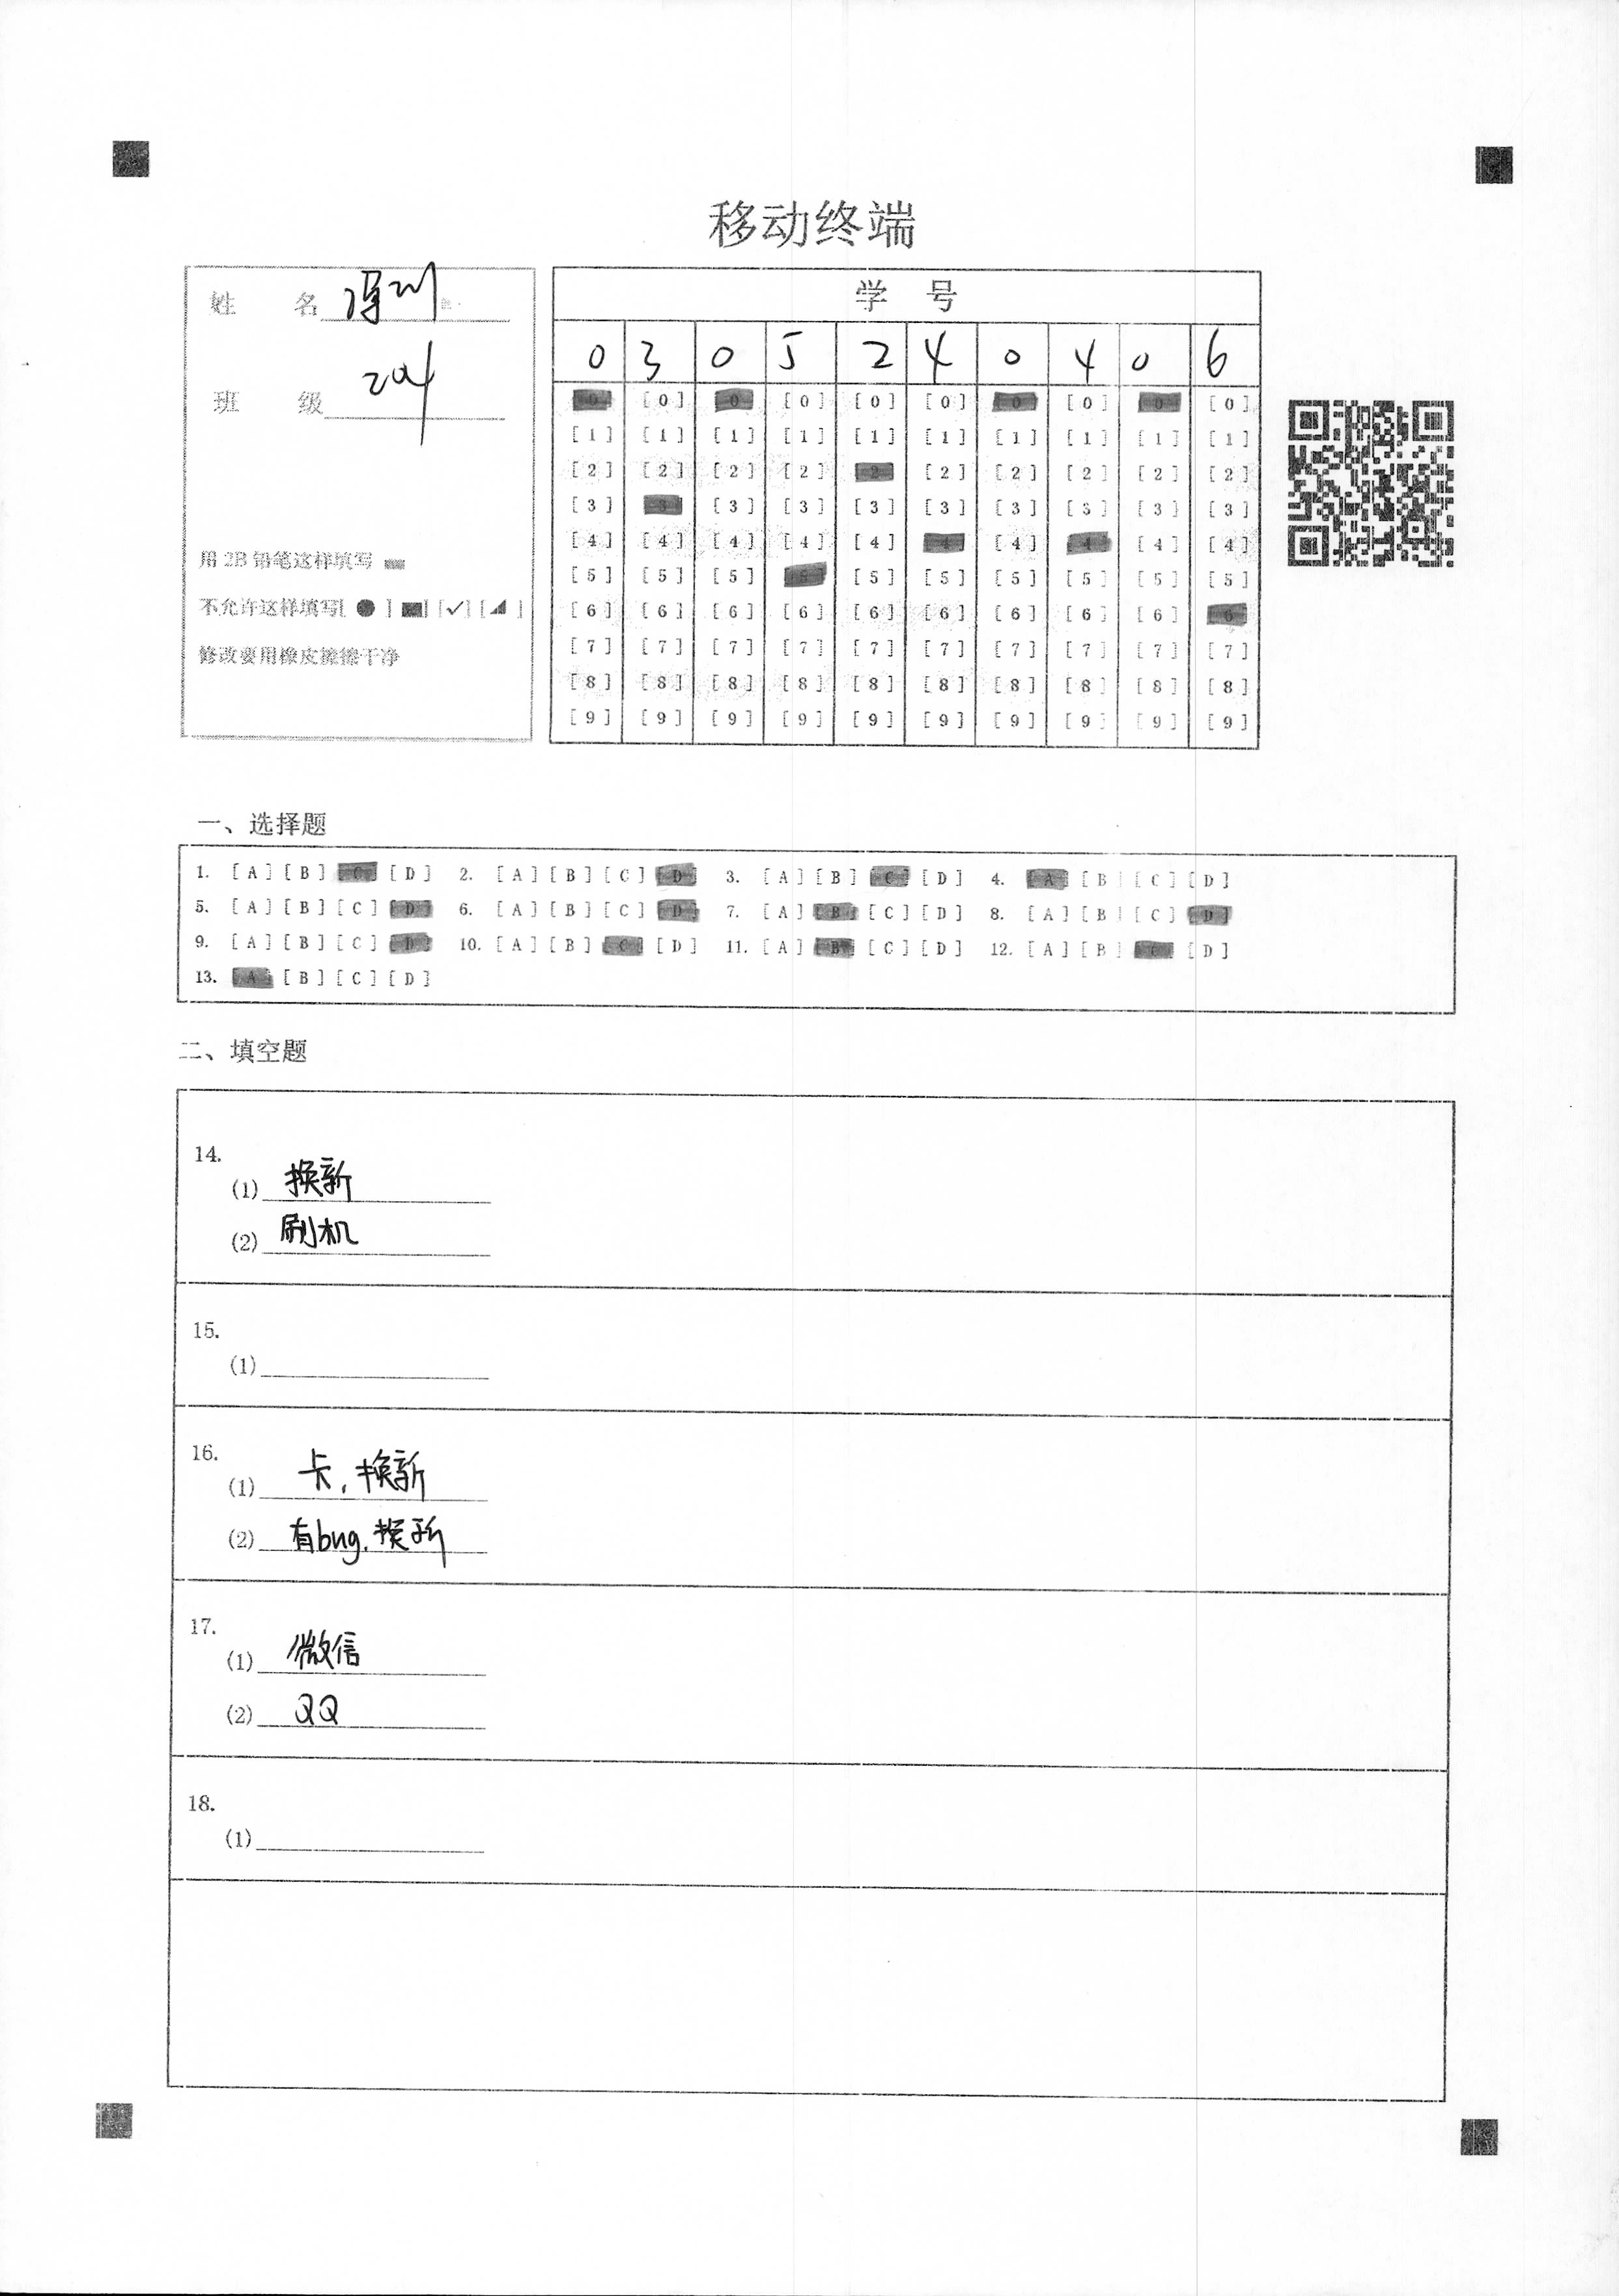 移动终端
姓 名
班 级 204
用 2B 铅笔这样填写
不允许这样填写[ ● ] [ ■ ] [✓] [◢ ]
修改要用橡皮擦擦干净
学 号
0 3 0 5 2 4 0 4 0 6
[0] [0] [0] [0] [0] [0] [0] [0] [0] [0]
[1] [1] [1] [1] [1] [1] [1] [1] [1] [1]
[2] [2] [2] [2] [2] [2] [2] [2] [2] [2]
[3] [3] [3] [3] [3] [3] [3] [3] [3] [3]
[4] [4] [4] [4] [4] [4] [4] [4] [4] [4]
[5] [5] [5] [5] [5] [5] [5] [5] [5] [5]
[6] [6] [6] [6] [6] [6] [6] [6] [6] [6]
[7] [7] [7] [7] [7] [7] [7] [7] [7] [7]
[8] [8] [8] [8] [8] [8] [8] [8] [8] [8]
[9] [9] [9] [9] [9] [9] [9] [9] [9] [9]
一、选择题
1. [A] [B] [C] [D] 2. [A] [B] [C] [D] 3. [A] [B] [C] [D] 4. [A] [B] [C] [D]
5. [A] [B] [C] [D] 6. [A] [B] [C] [D] 7. [A] [B] [C] [D] 8. [A] [B] [C] [D]
9. [A] [B] [C] [D] 10. [A] [B] [C] [D] 11. [A] [B] [C] [D] 12. [A] [B] [C] [D]
13. [A] [B] [C] [D]
二、填空题
14.
(1) 换新
(2) 刷机
15.
(1)
16.
(1) 卡, 换新
(2) 有bug, 换新
17.
(1) 微信
(2) QQ
18.
(1)